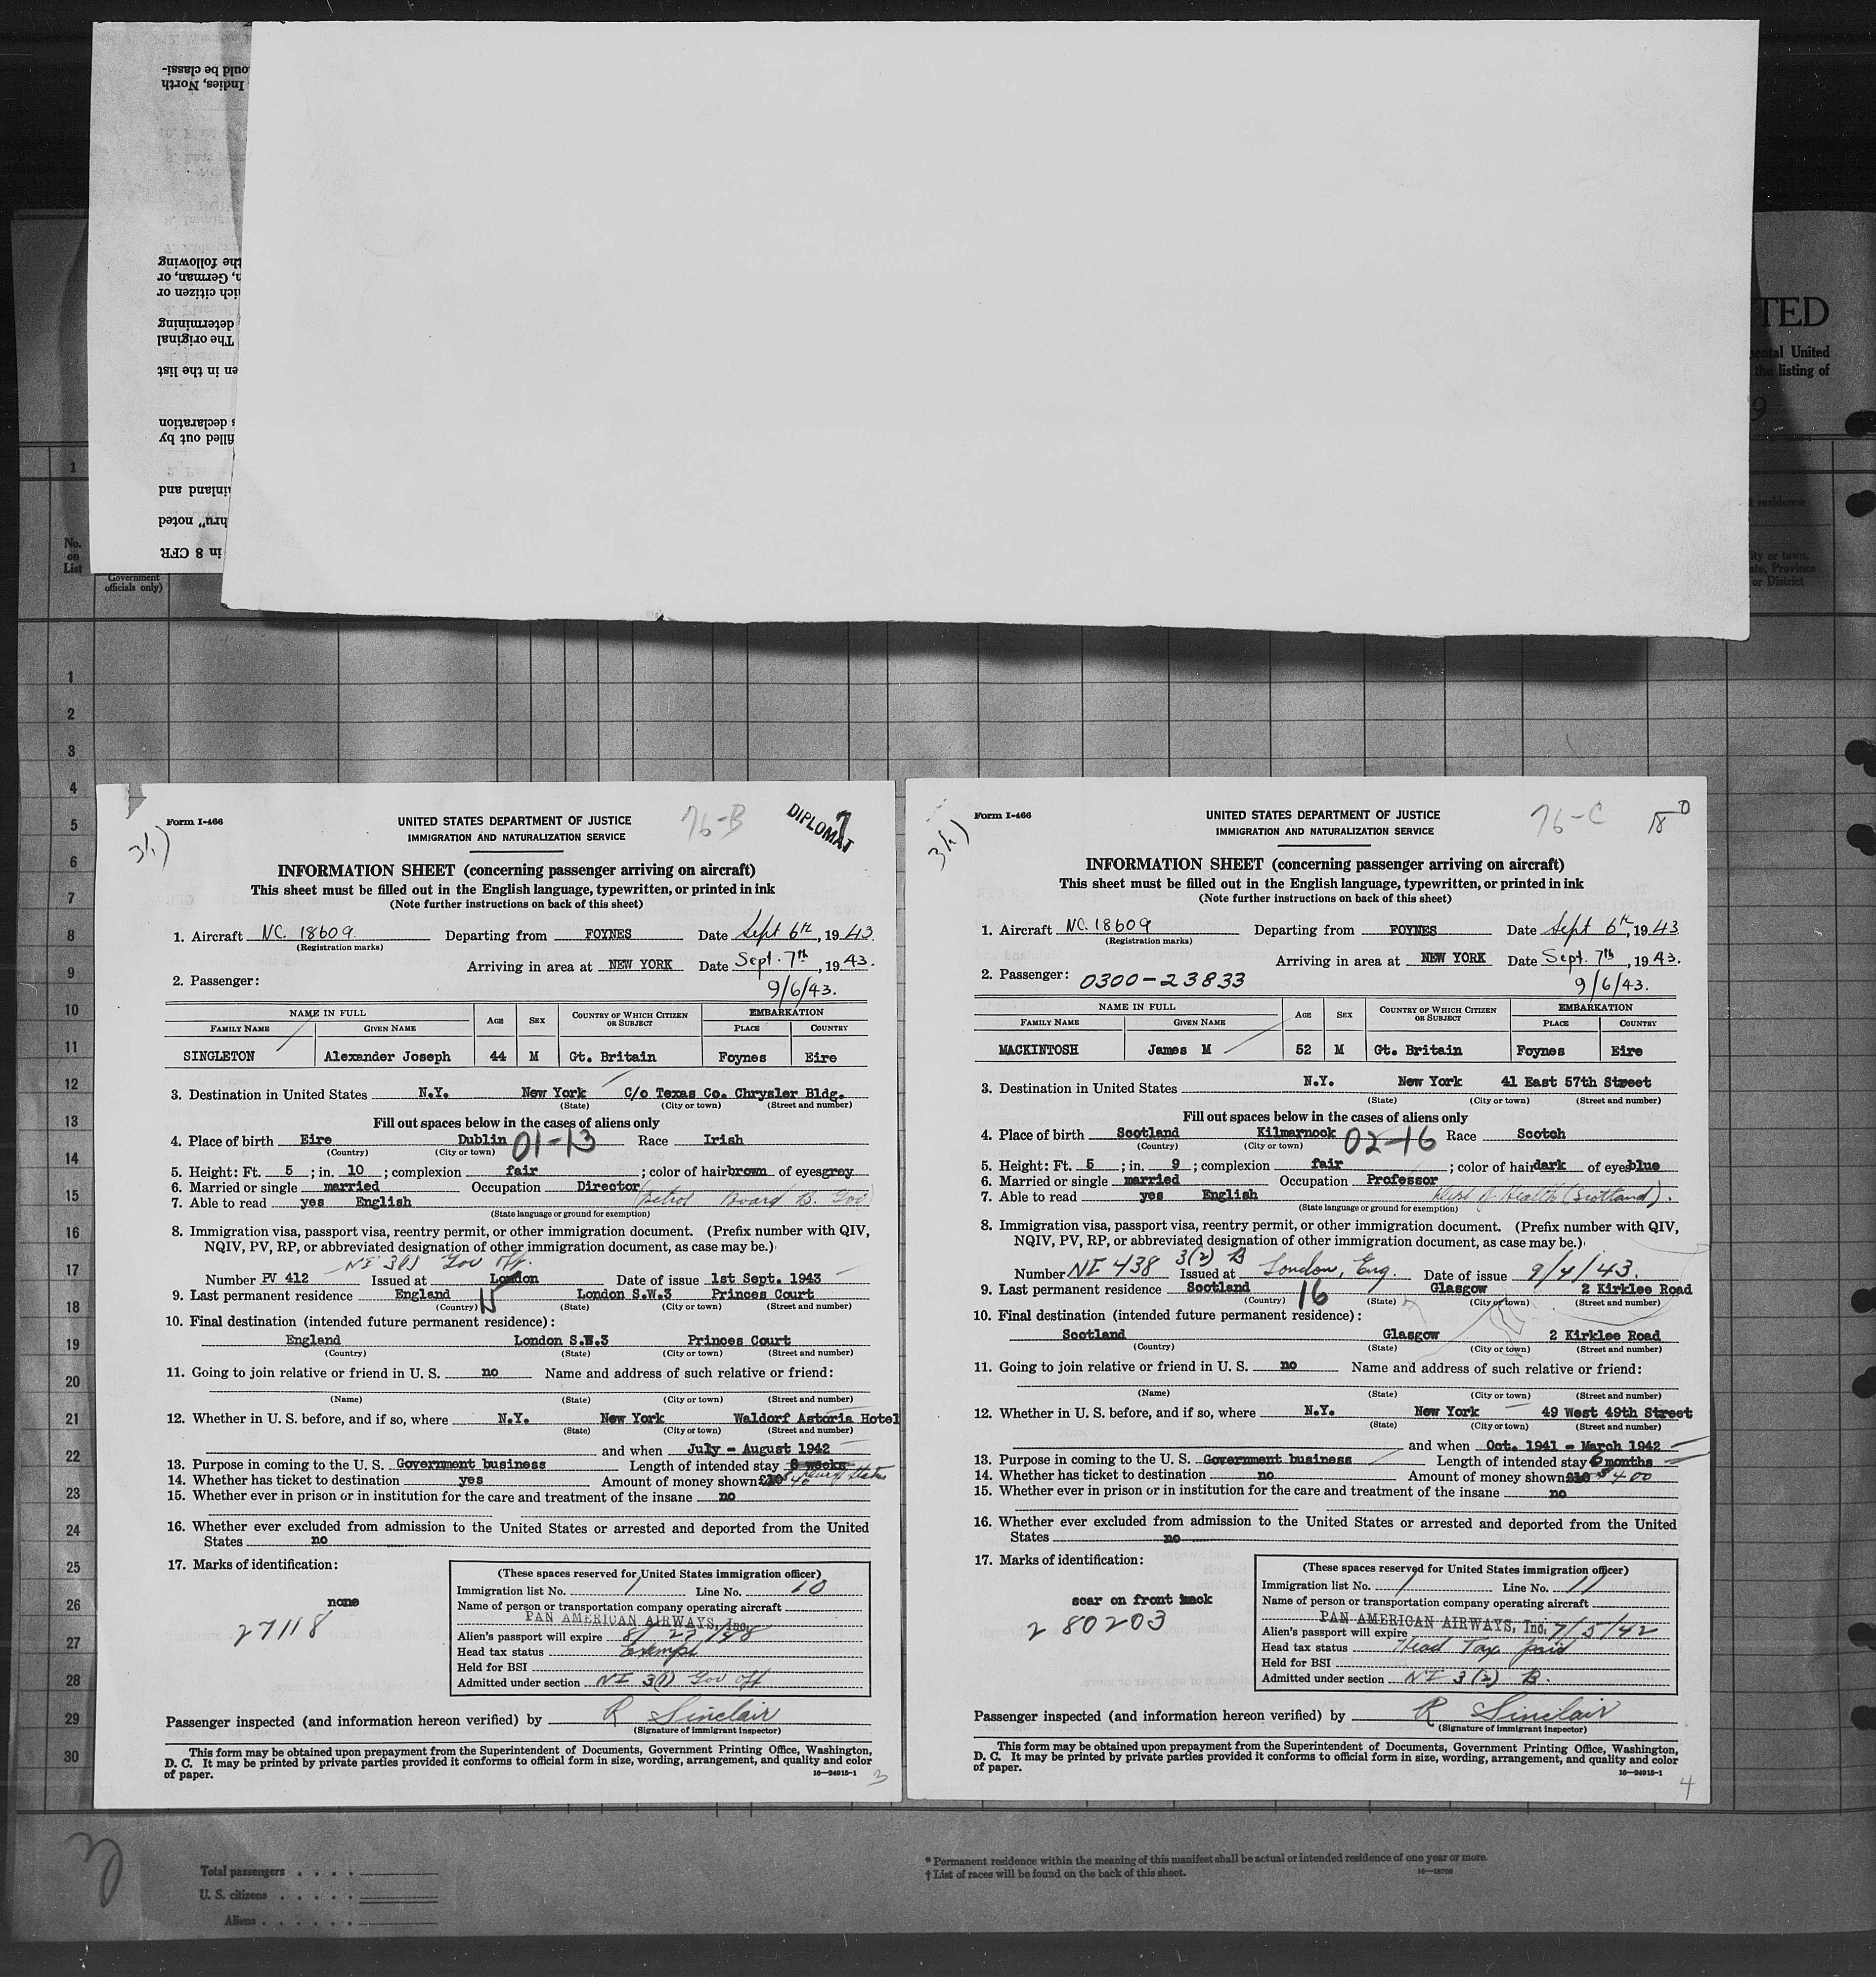 TED
ental United
the listing of
9
residence
ity or town,
ate, Province
or District
ould be classi-
Indies, North
the following
n, German, or
ich citizen or
determining
The original
en in the list
s declaration
filled out by
inland and
hru" noted
in 8 CFR
1
No.
on
List
Government
officials only)
1
2
3
4
5
6
7
8
9
10
11
12
13
14
15
16
17
18
19
20
21
22
23
24
25
26
27
28
29
30
Form I-466
UNITED STATES DEPARTMENT OF JUSTICE
IMMIGRATION AND NATURALIZATION SERVICE
76-B
DIPLOMAT
INFORMATION SHEET (concerning passenger arriving on aircraft)
This sheet must be filled out in the English language, typewritten, or printed in ink
(Note further instructions on back of this sheet)
1. Aircraft NC. 18609. Departing from FOYNES Date Sept 6th, 1943.
(Registration marks)
Arriving in area at NEW YORK Date Sept. 7th, 1943.
2. Passenger: 9/6/43.
NAME IN FULL AGE SEX COUNTRY OF WHICH CITIZEN OR SUBJECT EMBARKATION
FAMILY NAME GIVEN NAME PLACE COUNTRY
SINGLETON Alexander Joseph 44 M Gt. Britain Foynes Eire
3. Destination in United States N.Y. New York C/o Texas Co. Chrysler Bldg.
(State) (City or town) (Street and number)
Fill out spaces below in the cases of aliens only
4. Place of birth Eire Dublin 01-13 Race Irish
(Country) (City or town)
5. Height: Ft. 5; in. 10; complexion fair; color of hair brown of eyes grey
6. Married or single married Occupation Director
7. Able to read yes English (Petrol Board B. Gov)
(State language or ground for exemption)
8. Immigration visa, passport visa, reentry permit, or other immigration document. (Prefix number with QIV,
NQIV, PV, RP, or abbreviated designation of other immigration document, as case may be.)
NI 3(1) Gov Off.
Number PV 412 Issued at London Date of issue 1st Sept. 1943
9. Last permanent residence England London S.W.3 Princes Court
(Country) 15 (State) (City or town) (Street and number)
10. Final destination (intended future permanent residence):
England London S.W.3 Princes Court
(Country) (State) (City or town) (Street and number)
11. Going to join relative or friend in U. S. no Name and address of such relative or friend:
(Name) (State) (City or town) (Street and number)
12. Whether in U. S. before, and if so, where N.Y. New York Waldorf Astoria Hotel
(State) (City or town) (Street and number)
and when July - August 1942
13. Purpose in coming to the U. S. Government business Length of intended stay 6 weeks
14. Whether has ticket to destination yes Amount of money shown £10 $40
15. Whether ever in prison or in institution for the care and treatment of the insane no
16. Whether ever excluded from admission to the United States or arrested and deported from the United
States no
17. Marks of identification:
none
27118
(These spaces reserved for United States immigration officer)
Immigration list No. 1 Line No. 10
Name of person or transportation company operating aircraft
PAN AMERICAN AIRWAYS, Inc.
Alien's passport will expire 8/27/48
Head tax status Exempt
Held for BSI
Admitted under section NI 3(1) Gov Off
Passenger inspected (and information hereon verified) by R Sinclair
(Signature of immigrant inspector)
This form may be obtained upon prepayment from the Superintendent of Documents, Government Printing Office, Washington,
D. C. It may be printed by private parties provided it conforms to official form in size, wording, arrangement, and quality and color
of paper. 16—24915-1
3
Form I-466
UNITED STATES DEPARTMENT OF JUSTICE
IMMIGRATION AND NATURALIZATION SERVICE
76-C
18
INFORMATION SHEET (concerning passenger arriving on aircraft)
This sheet must be filled out in the English language, typewritten, or printed in ink
(Note further instructions on back of this sheet)
1. Aircraft NC. 18609 Departing from FOYNES Date Sept 6th, 1943
(Registration marks)
Arriving in area at NEW YORK Date Sept. 7th, 1943.
2. Passenger: 0300-23833 9/6/43.
NAME IN FULL AGE SEX COUNTRY OF WHICH CITIZEN OR SUBJECT EMBARKATION
FAMILY NAME GIVEN NAME PLACE COUNTRY
MACKINTOSH James M 52 M Gt. Britain Foynes Eire
3. Destination in United States N.Y. New York 41 East 57th Street
(State) (City or town) (Street and number)
Fill out spaces below in the cases of aliens only
4. Place of birth Scotland Kilmarnock 02-16 Race Scotch
(Country) (City or town)
5. Height: Ft. 5; in. 9; complexion fair; color of hair dark of eyes blue
6. Married or single married Occupation Professor
7. Able to read yes English Dept of Health (Scotland).
(State language or ground for exemption)
8. Immigration visa, passport visa, reentry permit, or other immigration document. (Prefix number with QIV,
NQIV, PV, RP, or abbreviated designation of other immigration document, as case may be.)
Number NI 438 3(2) B Issued at London, Eng. Date of issue 9/4/43.
9. Last permanent residence Scotland Glasgow 2 Kirklee Road
(Country) 16 (State) (City or town) (Street and number)
10. Final destination (intended future permanent residence):
Scotland Glasgow 2 Kirklee Road
(Country) (State) (City or town) (Street and number)
11. Going to join relative or friend in U. S. no Name and address of such relative or friend:
(Name) (State) (City or town) (Street and number)
12. Whether in U. S. before, and if so, where N.Y. New York 49 West 49th Street
(State) (City or town) (Street and number)
and when Oct. 1941 - March 1942
13. Purpose in coming to the U. S. Government business Length of intended stay 6 months
14. Whether has ticket to destination no Amount of money shown £10 $400
15. Whether ever in prison or in institution for the care and treatment of the insane no
16. Whether ever excluded from admission to the United States or arrested and deported from the United
States no
17. Marks of identification:
scar on front neck
280203
(These spaces reserved for United States immigration officer)
Immigration list No. 1 Line No. 11
Name of person or transportation company operating aircraft
PAN AMERICAN AIRWAYS, Inc.
Alien's passport will expire 7/5/42
Head tax status Head Tax paid
Held for BSI
Admitted under section NI 3(2) B.
Passenger inspected (and information hereon verified) by R Sinclair
(Signature of immigrant inspector)
This form may be obtained upon prepayment from the Superintendent of Documents, Government Printing Office, Washington,
D. C. It may be printed by private parties provided it conforms to official form in size, wording, arrangement, and quality and color
of paper. 16—24915-1
4
Total passengers
U. S. citizens
Aliens
* Permanent residence within the meaning of this manifest shall be actual or intended residence of one year or more.
† List of races will be found on the back of this sheet. 16—18709